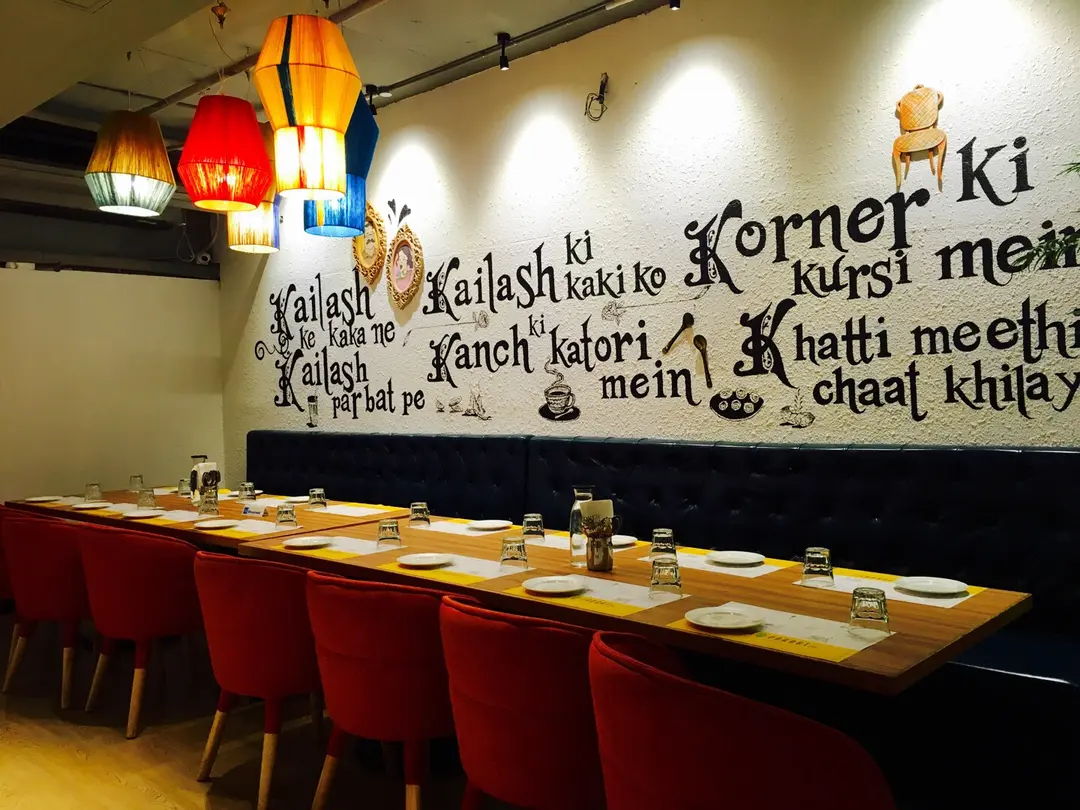 Kailash
ke kaka ne
Kailash
par bat pe
Kailash ki
kaki ko
Kanch ki katori
mein
Korner ki
kursi mein
Khatti meethi
chaat khilay